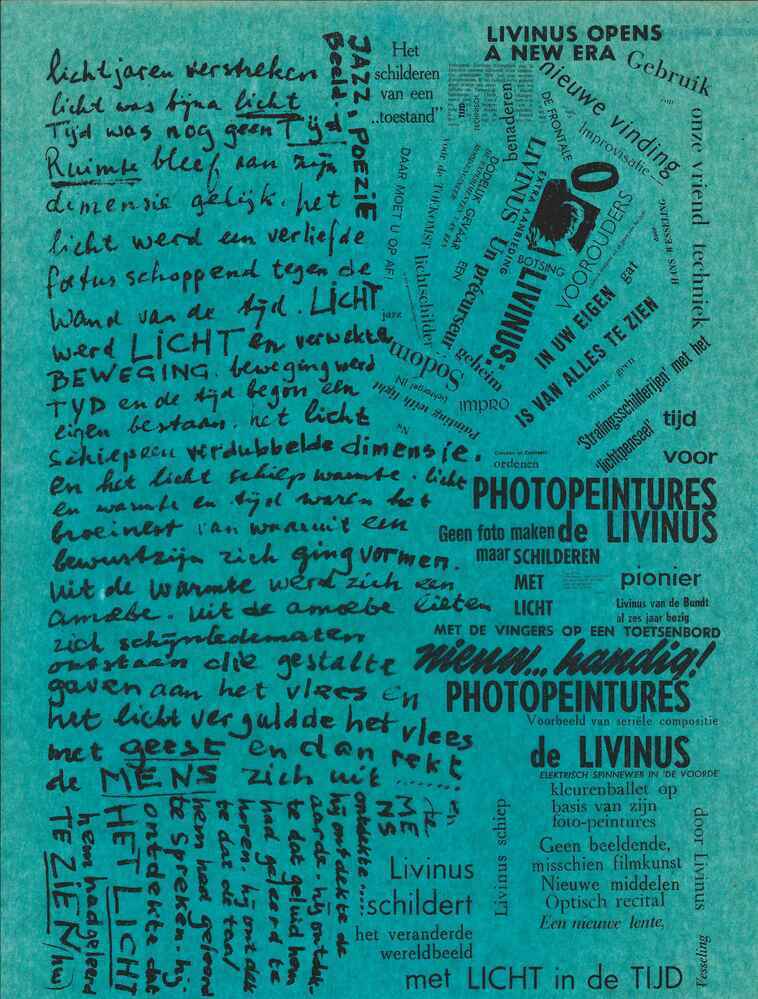 JAZZ & POEZIE
lichtjaren verstreken
licht was bijna licht
Tijd was nog geen Tijd
Ruimte bleef aan zijn
dimensie gelijk. het
licht werd een verliefde
foetus schoppend tegen de
wand van de tijd. LICHT
werd LICHT en verwekte
BEWEGING. beweging werd
TYD en de tijd begon een
eigen bestaan. het licht
schiep een verdubbelde dimensie.
en het licht schiep warmte. licht
en warmte en tijd waren het
broeinest van waaruit een
bewustzijn zich ging vormen.
uit de warmte werd zich een
amoebe. uit de amoebe lieten
zich schijnledematen
ontstaan die gestalte
gaven aan het vlees en
het licht verguldde het vlees
met geest en dan rekt
de MENS zich uit ......... en
de
MENS
ontdekte.....
hij ontdekte de
aarde. hij ontdek-
te dat geluid hem
had geleerd te
horen. hij ontdek
te dat de taal
hem had geleerd
te spreken. hij
ontdekte dat
HET LICHT
hem had geleerd
TE ZIEN/
LIVINUS OPENS
A NEW ERA
Het
schilderen
van een
„toestand”
Gebruik
nieuwe vinding
Improvisatie
onze vriend techniek
benaderen
DE FRONTALE
LIVINUS
EXTRA AANBIEDING
BOTSING
VOOROUDERS
DODELIJK GEVAAR
EEN
DAAR MOET U OP AF!
voor de TOEKOMST
lichtschilder
Un précurseur
LIVINUS:
geheim
Sodom
jazz
IN UW EIGEN
gat
IS VAN ALLES TE ZIEN
maar geen
WESSELING
Painting with light
IMPRO
'Stralingsschilderijen' met het
'lichtpenseel'
tijd
voor
ordenen
PHOTOPEINTURES
de LIVINUS
Geen foto maken
maar SCHILDEREN
MET
LICHT
pionier
Livinus van de Bundt
al zes jaar bezig
MET DE VINGERS OP EEN TOETSENBORD
nieuw... handig!
PHOTOPEINTURES
Voorbeeld van seriële compositie
de LIVINUS
ELEKTRISCH SPINNEWEB IN 'DE VOORDE
kleurenballet op
basis van zijn
foto-peintures
Livinus schiep
door Livinus
Geen beeldende,
misschien filmkunst
Nieuwe middelen
Optisch recital
Een nieuwe lente,
Livinus
schildert
het veranderde
wereldbeeld
met LICHT in de TIJD
Wesseling